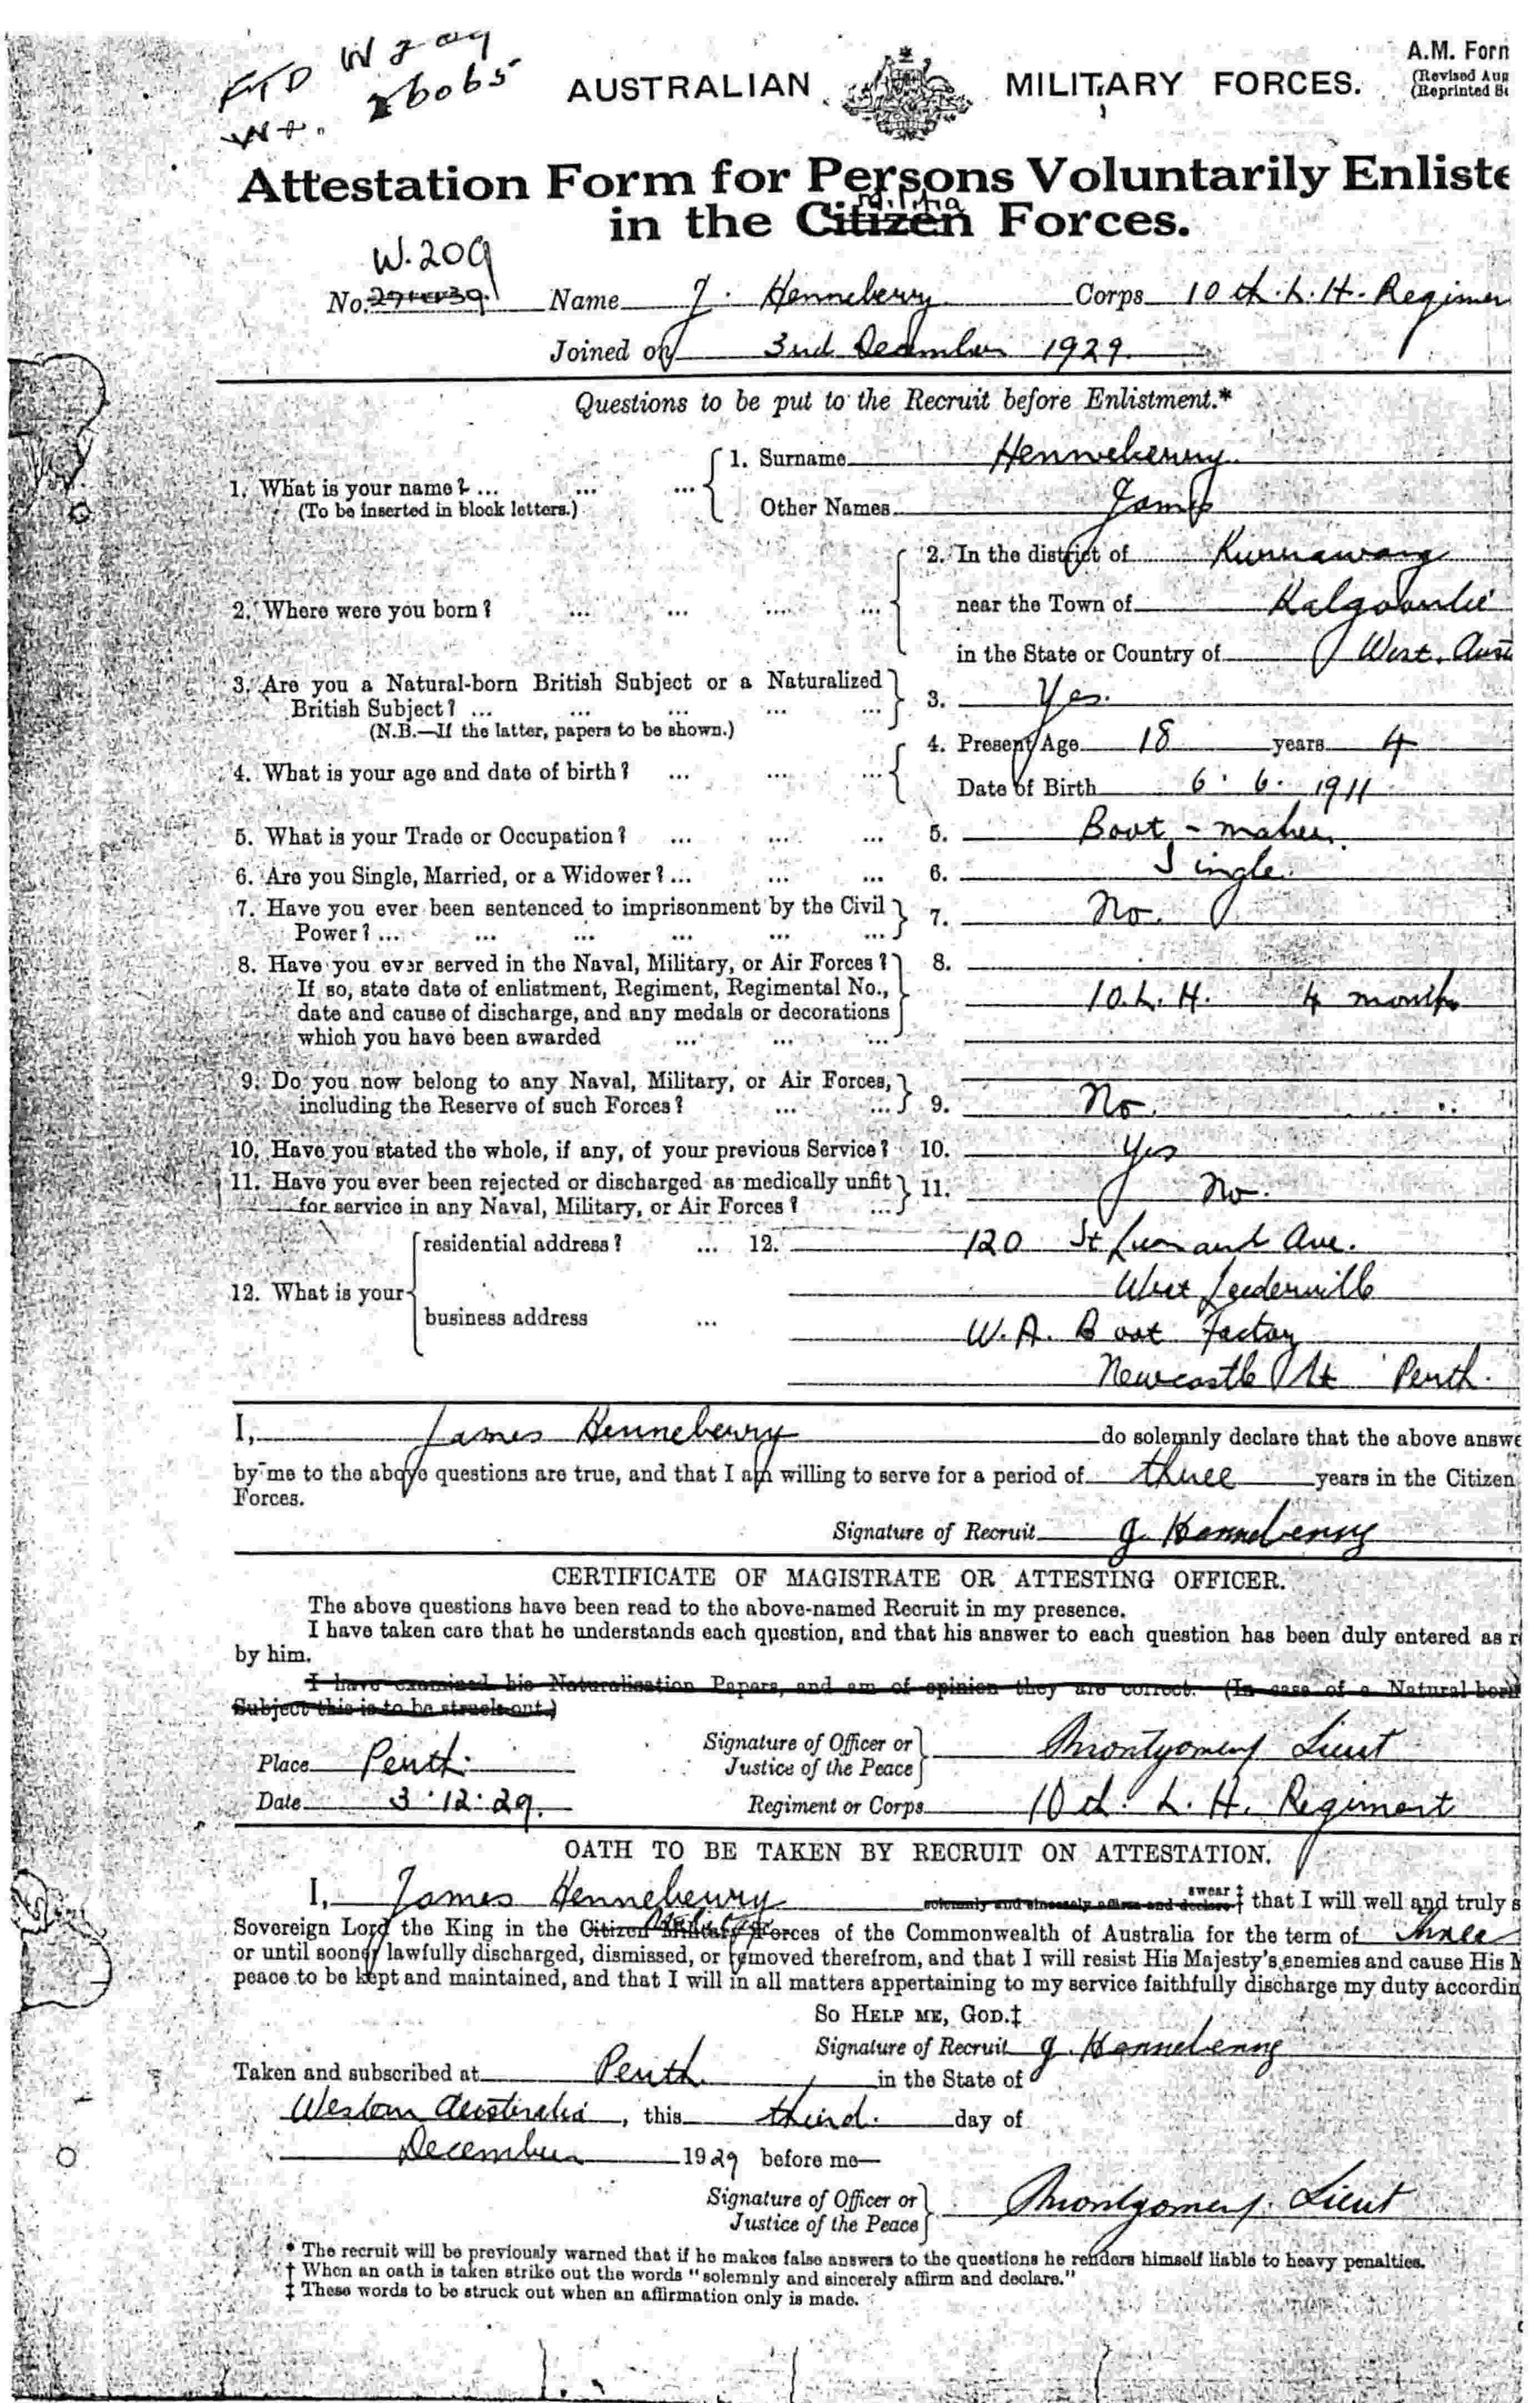 A.M. Form
AUSTRALIAN MILITARY FORCES.
(Revised Aug
(Reprinted
Attestation Form for Persons Voluntarily Enliste
Militia
in the Citizen Forces.
W.209
No. Name J. Henneberry Corps 10th. L. H. Regimen
Joined on 3rd December 1929.
Questions to be put to the Recruit before Enlistment.*
1. What is your name? ... ... ... 1. Surname Henneberry
(To be inserted in block letters.) Other Names James
2. In the district of Kurrawang
2. Where were you born? ... ... ... ... near the Town of Kalgoorlie
in the State or Country of West. Aust
3. Are you a Natural-born British Subject or a Naturalized
British Subject? ... ... ... ... ... 3. Yes.
(N.B.—If the latter, papers to be shown.)
4. Present Age 18 years 4
4. What is your age and date of birth? ... ... ...
Date of Birth 6. 6. 1911
5. What is your Trade or Occupation? ... ... ... 5. Boot - maker.
6. Are you Single, Married, or a Widower? ... ... ... 6. Single.
7. Have you ever been sentenced to imprisonment by the Civil
Power? ... ... ... ... ... ... 7. No.
8. Have you ever served in the Naval, Military, or Air Forces? 8.
If so, state date of enlistment, Regiment, Regimental No., 10. L. H. 4 months
date and cause of discharge, and any medals or decorations
which you have been awarded ... ... ...
9. Do you now belong to any Naval, Military, or Air Forces,
including the Reserve of such Forces? ... ... 9. No.
10. Have you stated the whole, if any, of your previous Service? 10. Yes
11. Have you ever been rejected or discharged as medically unfit
for service in any Naval, Military, or Air Forces? ... 11. No.
residential address? ... 12. 120 St Leonards Ave.
12. What is your West Leederville
business address ... W. A. Boot Factory
Newcastle St Perth.
I, James Henneberry do solemnly declare that the above answe
by me to the above questions are true, and that I am willing to serve for a period of three years in the Citizen
Forces.
Signature of Recruit J. Henneberry
CERTIFICATE OF MAGISTRATE OR ATTESTING OFFICER.
The above questions have been read to the above-named Recruit in my presence.
I have taken care that he understands each question, and that his answer to each question has been duly entered as r
by him.
I have examined his Naturalisation Papers, and am of opinion they are correct. (In case of a Natural-born
Subject this is to be struck out.)
Signature of Officer or
Justice of the Peace Montgomery Lieut
Place Perth.
Date 3.12.29. Regiment or Corps 10th. L. H. Regiment
OATH TO BE TAKEN BY RECRUIT ON ATTESTATION.
I, James Henneberry solemnly and sincerely affirm and declare swear ‡ that I will well and truly s
Sovereign Lord the King in the Citizen Military Forces of the Commonwealth of Australia for the term of three
or until sooner lawfully discharged, dismissed, or removed therefrom, and that I will resist His Majesty's enemies and cause His M
peace to be kept and maintained, and that I will in all matters appertaining to my service faithfully discharge my duty accordin
SO HELP ME, GOD.‡
Signature of Recruit J. Henneberry
Taken and subscribed at Perth in the State of
Western Australia, this third. day of
December 1929 before me—
Signature of Officer or
Justice of the Peace Montgomery. Lieut
* The recruit will be previously warned that if he makes false answers to the questions he renders himself liable to heavy penalties.
† When an oath is taken strike out the words "solemnly and sincerely affirm and declare."
‡ These words to be struck out when an affirmation only is made.